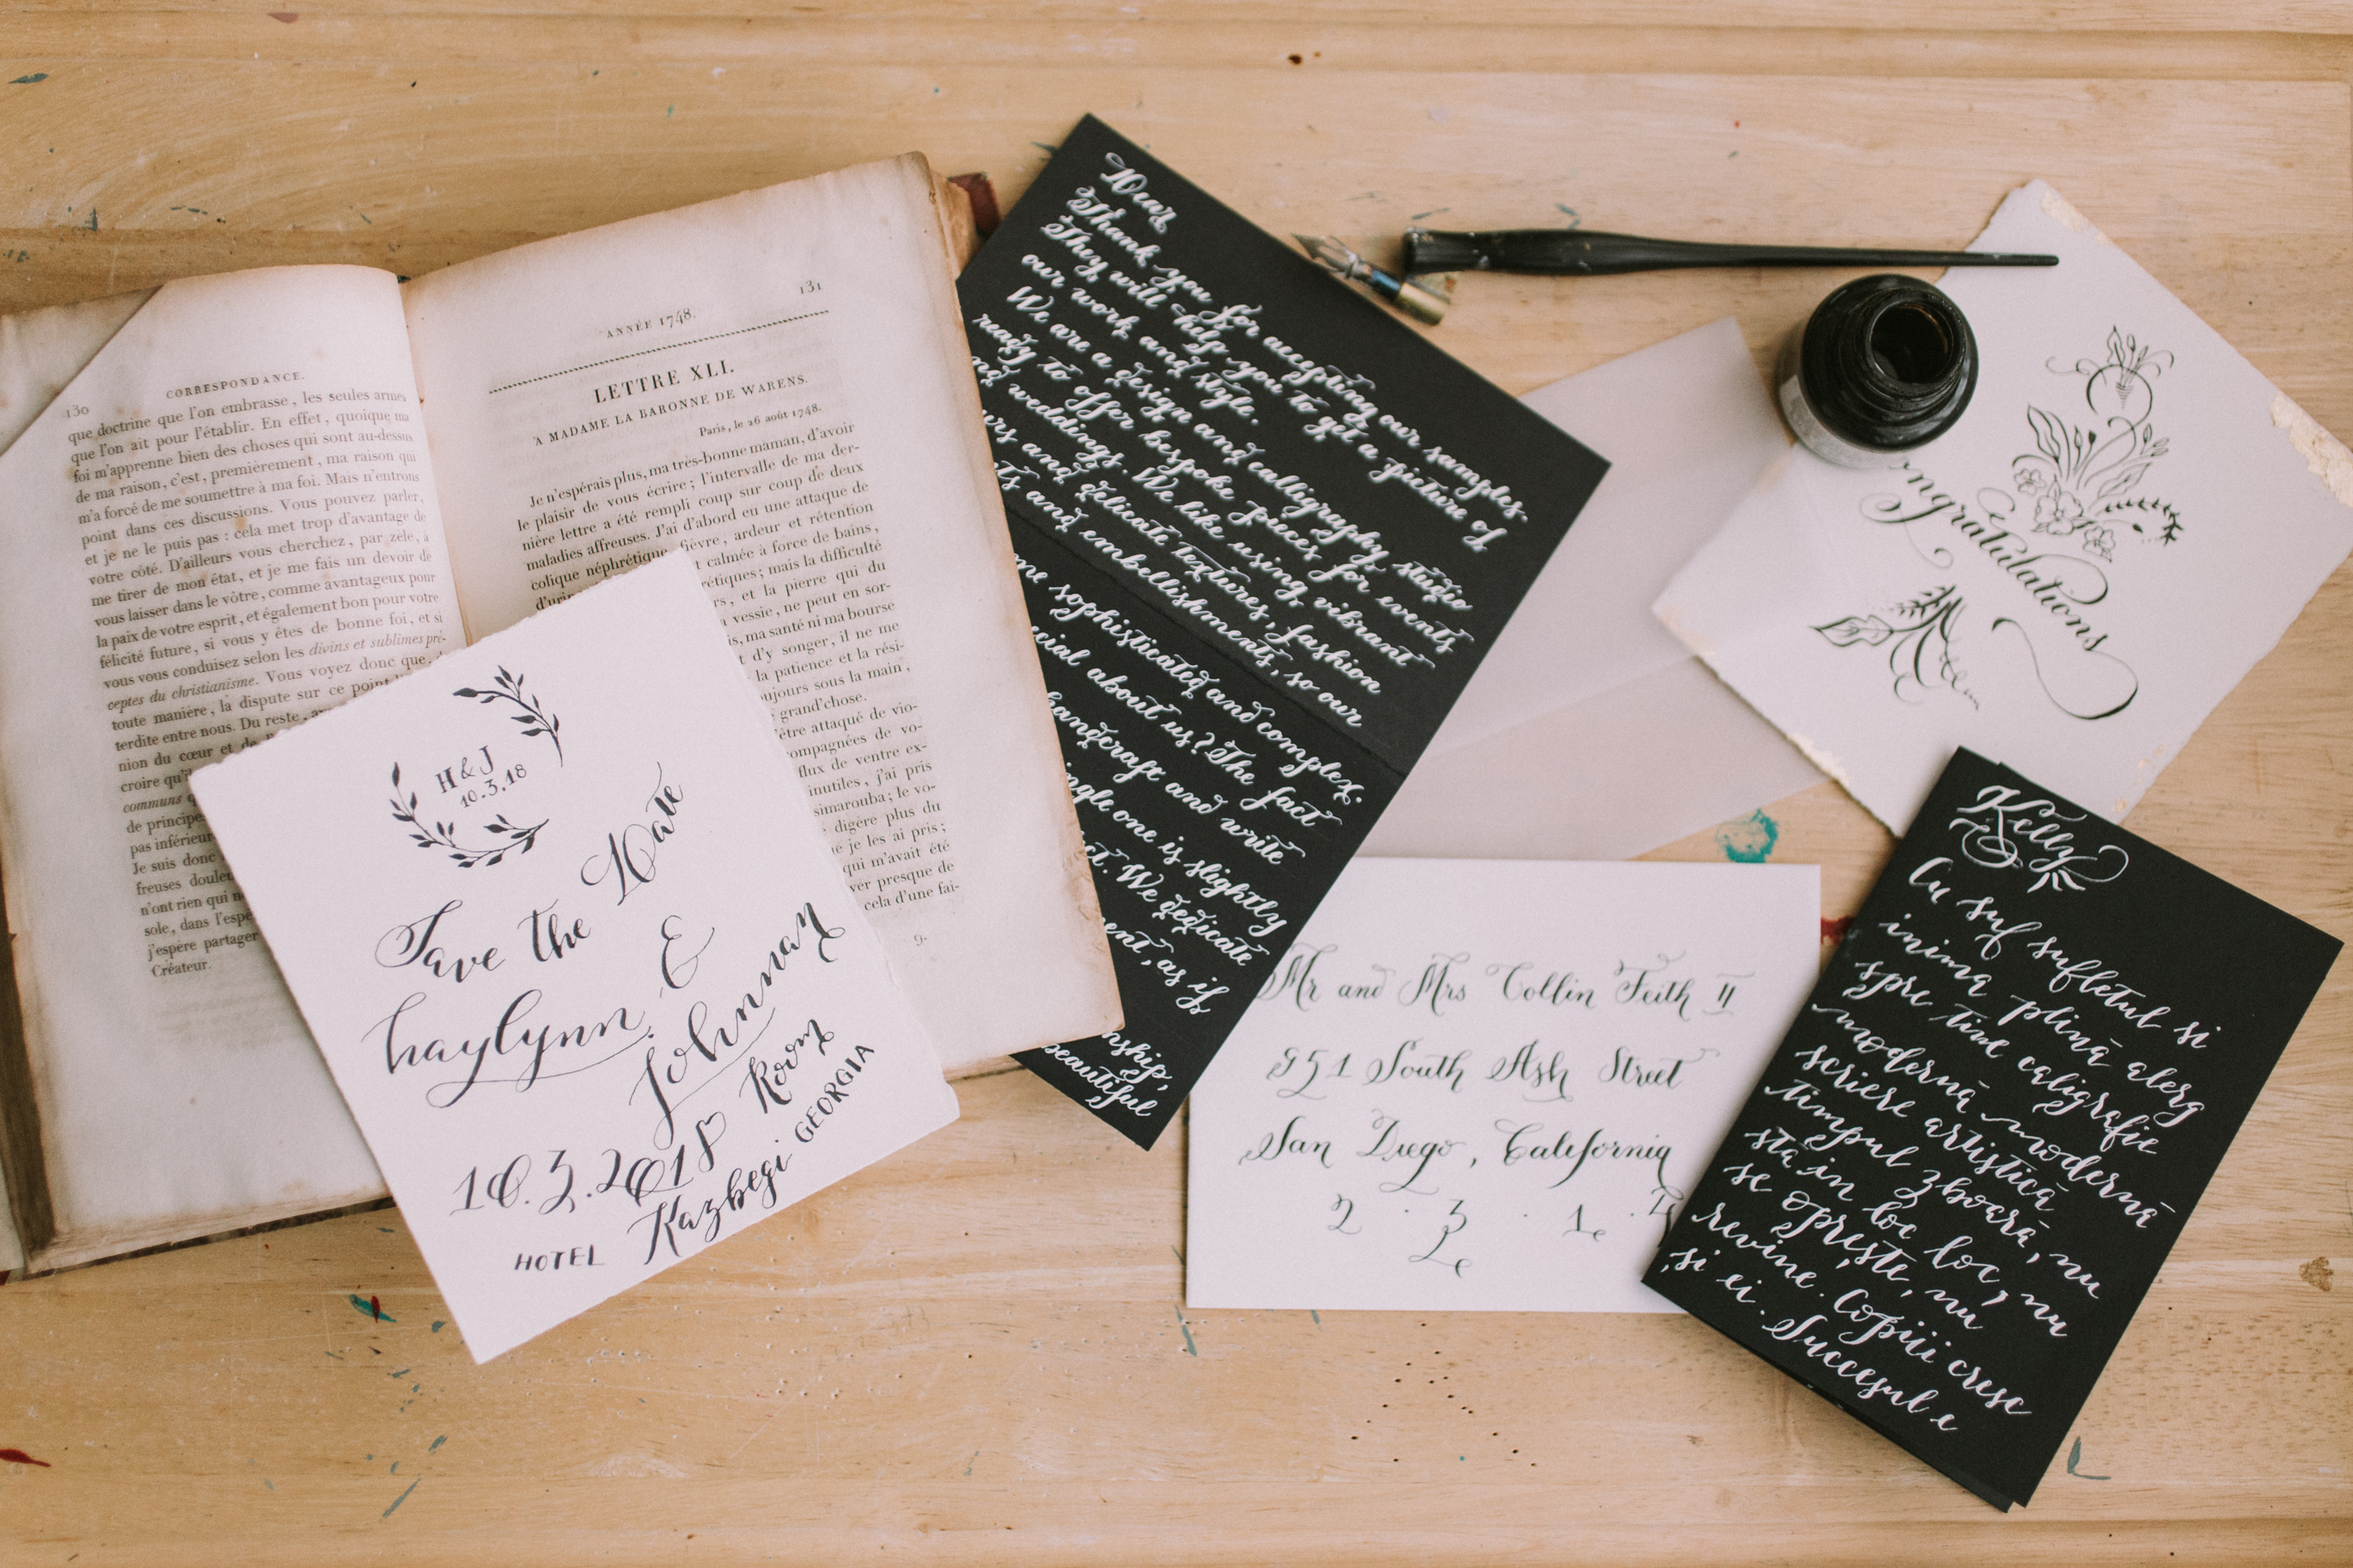 130
CORRESPONDANCE.
que doctrine que l'on embrasse, les seules armes
que l'on ait pour l'établir. En effet, quoique ma
foi m'apprenne bien des choses qui sont au-dessus
de ma raison, c'est, premièrement, ma raison qui
m'a forcé de me soumettre à ma foi. Mais n'entrons
point dans ces discussions. Vous pouvez parler,
et je ne le puis pas : cela met trop d'avantage de
votre côté. D'ailleurs vous cherchez, par zèle, à
me tirer de mon état, et je me fais un devoir de
vous laisser dans le vôtre, comme avantageux pour
la paix de votre esprit, et également bon pour votre
félicité future, si vous y êtes de bonne foi, et si
vous vous conduisez selon les divins et sublimes pré-
ceptes du christianisme. Vous voyez donc que, de
toute manière, la dispute sur ce point
terdite entre nous. Du reste,
nion du cœur et de
croire qu'il
communs
de principes
pas inférieur
Je suis donc
freuses douleu
n'ont rien qui
sole, dans l'espé
j'espère partager
Créateur.
ANNÉE 1748.
131
LETTRE XLI.
A MADAME LA BARONNE DE WARENS.
Paris, le 26 août 1748.
Je n'espérais plus, ma très-bonne maman, d'avoir
le plaisir de vous écrire; l'intervalle de ma der-
nière lettre a été rempli coup sur coup de deux
maladies affreuses. J'ai d'abord eu une attaque de
colique néphrétique, fièvre, ardeur et rétention
d'urin calmée à force de bains,
rétiques; mais la difficulté
rs, et la pierre qui du
vessie, ne peut en sor-
is, ma santé ni ma bourse
t d'y songer, il ne me
la patience et la rési-
ujours sous la main,
grand'chose.
'être attaqué de vio-
ompagnées de vo-
flux de ventre ex-
inutiles, j'ai pris
simarouba; le vo-
digère plus du
e je les ai pris;
qui m'avait été
ver presque de
cela d'une fai-
9.
H & J
10.3.18
Save the Date
haylynn &
Johnnan
10.3.2018 Room
HOTEL Kazbegi GEORGIA
Dear
Thank you for accepting our samples.
They will help you to get a picture of
our work and style.
We are a design and calligraphy studio
ready to offer bespoke pieces for events
nd weddings. We like using vibrant
ers and delicate textures, fashion
ts and embellishments, so our
me sophisticated and complex.
cial about us? The fact
handcraft and write
ingle one is slightly
ct. We dedicate
ent, as if
nship,
beautiful
ongratulations
Mr and Mrs Collin Feith II
951 South Ash Street
San Diego, California
2 · 3 · 1 ·
Kelly
Cu suf sufletul si
inima plină alerg
spre tine caligrafie
modernă modernă
scriere artistică
timpul zboară, nu
sta in loc loc, nu
se oprește, nu
revine. Copiii cresc
,si ei. Succesul e